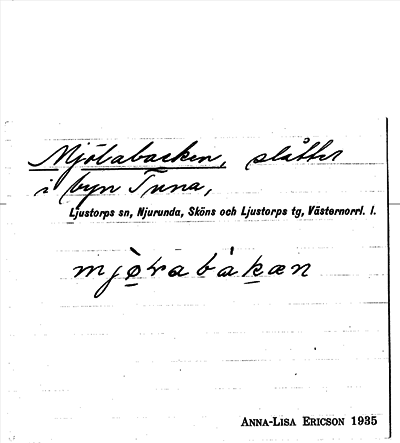 Mjölabacken, slåtter
i byn Tuna,
Ljustorps sn, Njurunda, Sköns och Ljustorps tg, Västernorrl. l.
mjø̀ɽabàkæn
ANNA-LISA ERICSON 1935